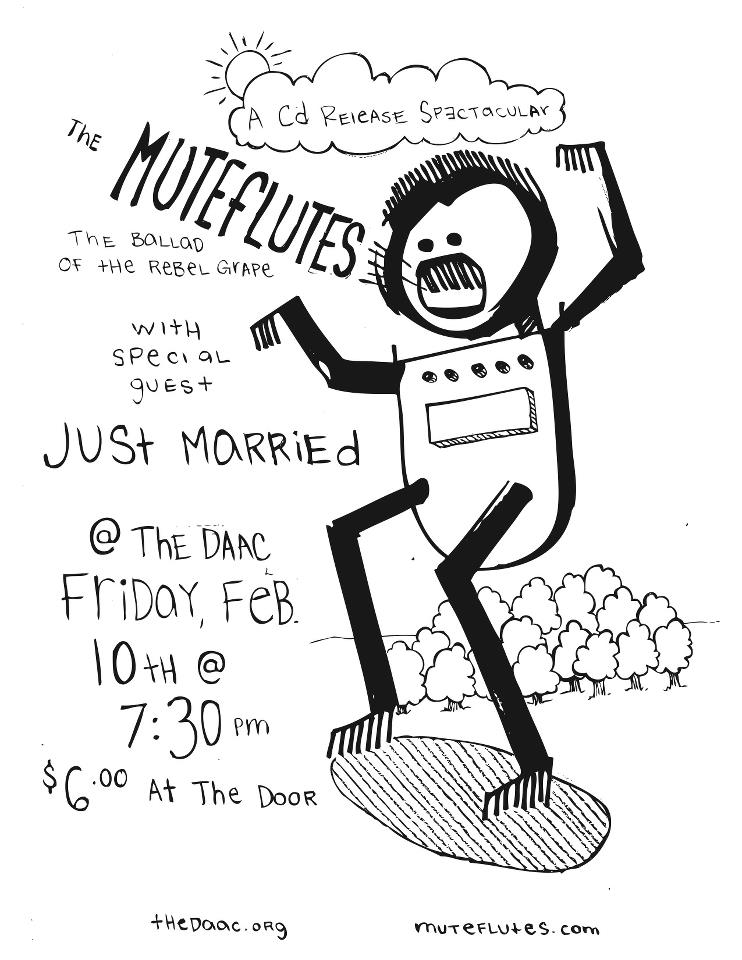 A Cd RElEASE SPECTACULAR
The
MUTEFLUTES
The BaLLAD
OF tHe ReBeL GrAPe
wiTH
SPecial
gUESt
JUSt MARRiEd
@ ThE DAAC
FriDaY, FeB.
10tH @
7:30 pm
$6.00 At The DooR
tHeDaac.oRg
muteFLUtes.com